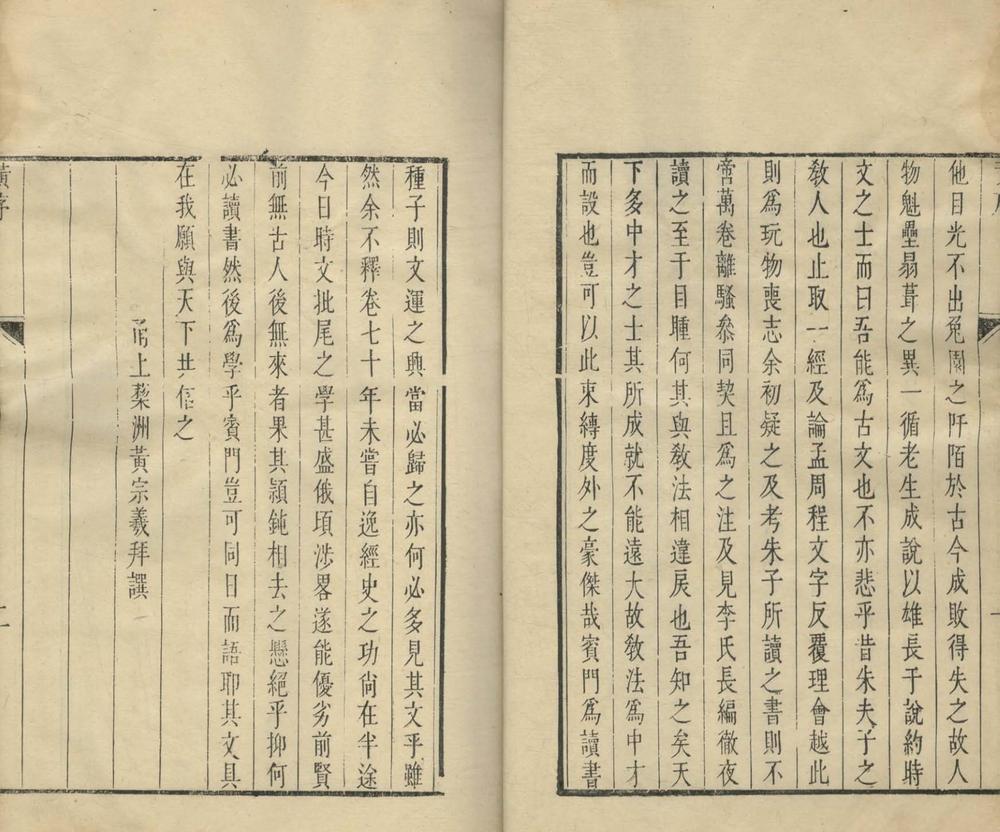 他目光不出兔園之阡陌於古今成敗得失之故人
物魁壘曷葺之異一循老生成說以雄長于說約時
文之士而曰吾能爲古文也不亦悲乎昔朱夫子之
敎人也止取一經及論孟周程文字反覆理會越此
則爲玩物喪志余初疑之及考朱子所讀之書則不
啻萬卷離騷叅同契且爲之注及見李氏長編徹夜
讀之至于目腫何其與敎法相違戾也吾知之矣天
下多中才之士其所成就不能遠大故敎法爲中才
而設也豈可以此束縛度外之豪傑哉賓門爲讀書
種子則文運之興當必歸之亦何必多見其文乎雖
然余不釋卷七十年未嘗自逸經史之功尙在半途
今日時文批尾之學甚盛俄頃涉畧遂能優劣前賢
前無古人後無來者果其頴鈍相去之懸絕乎抑何
必讀書然後爲學乎賓門豈可同日而語耶其文具
在我願與天下共信之
上棃洲黃宗羲拜譔
黃序
二